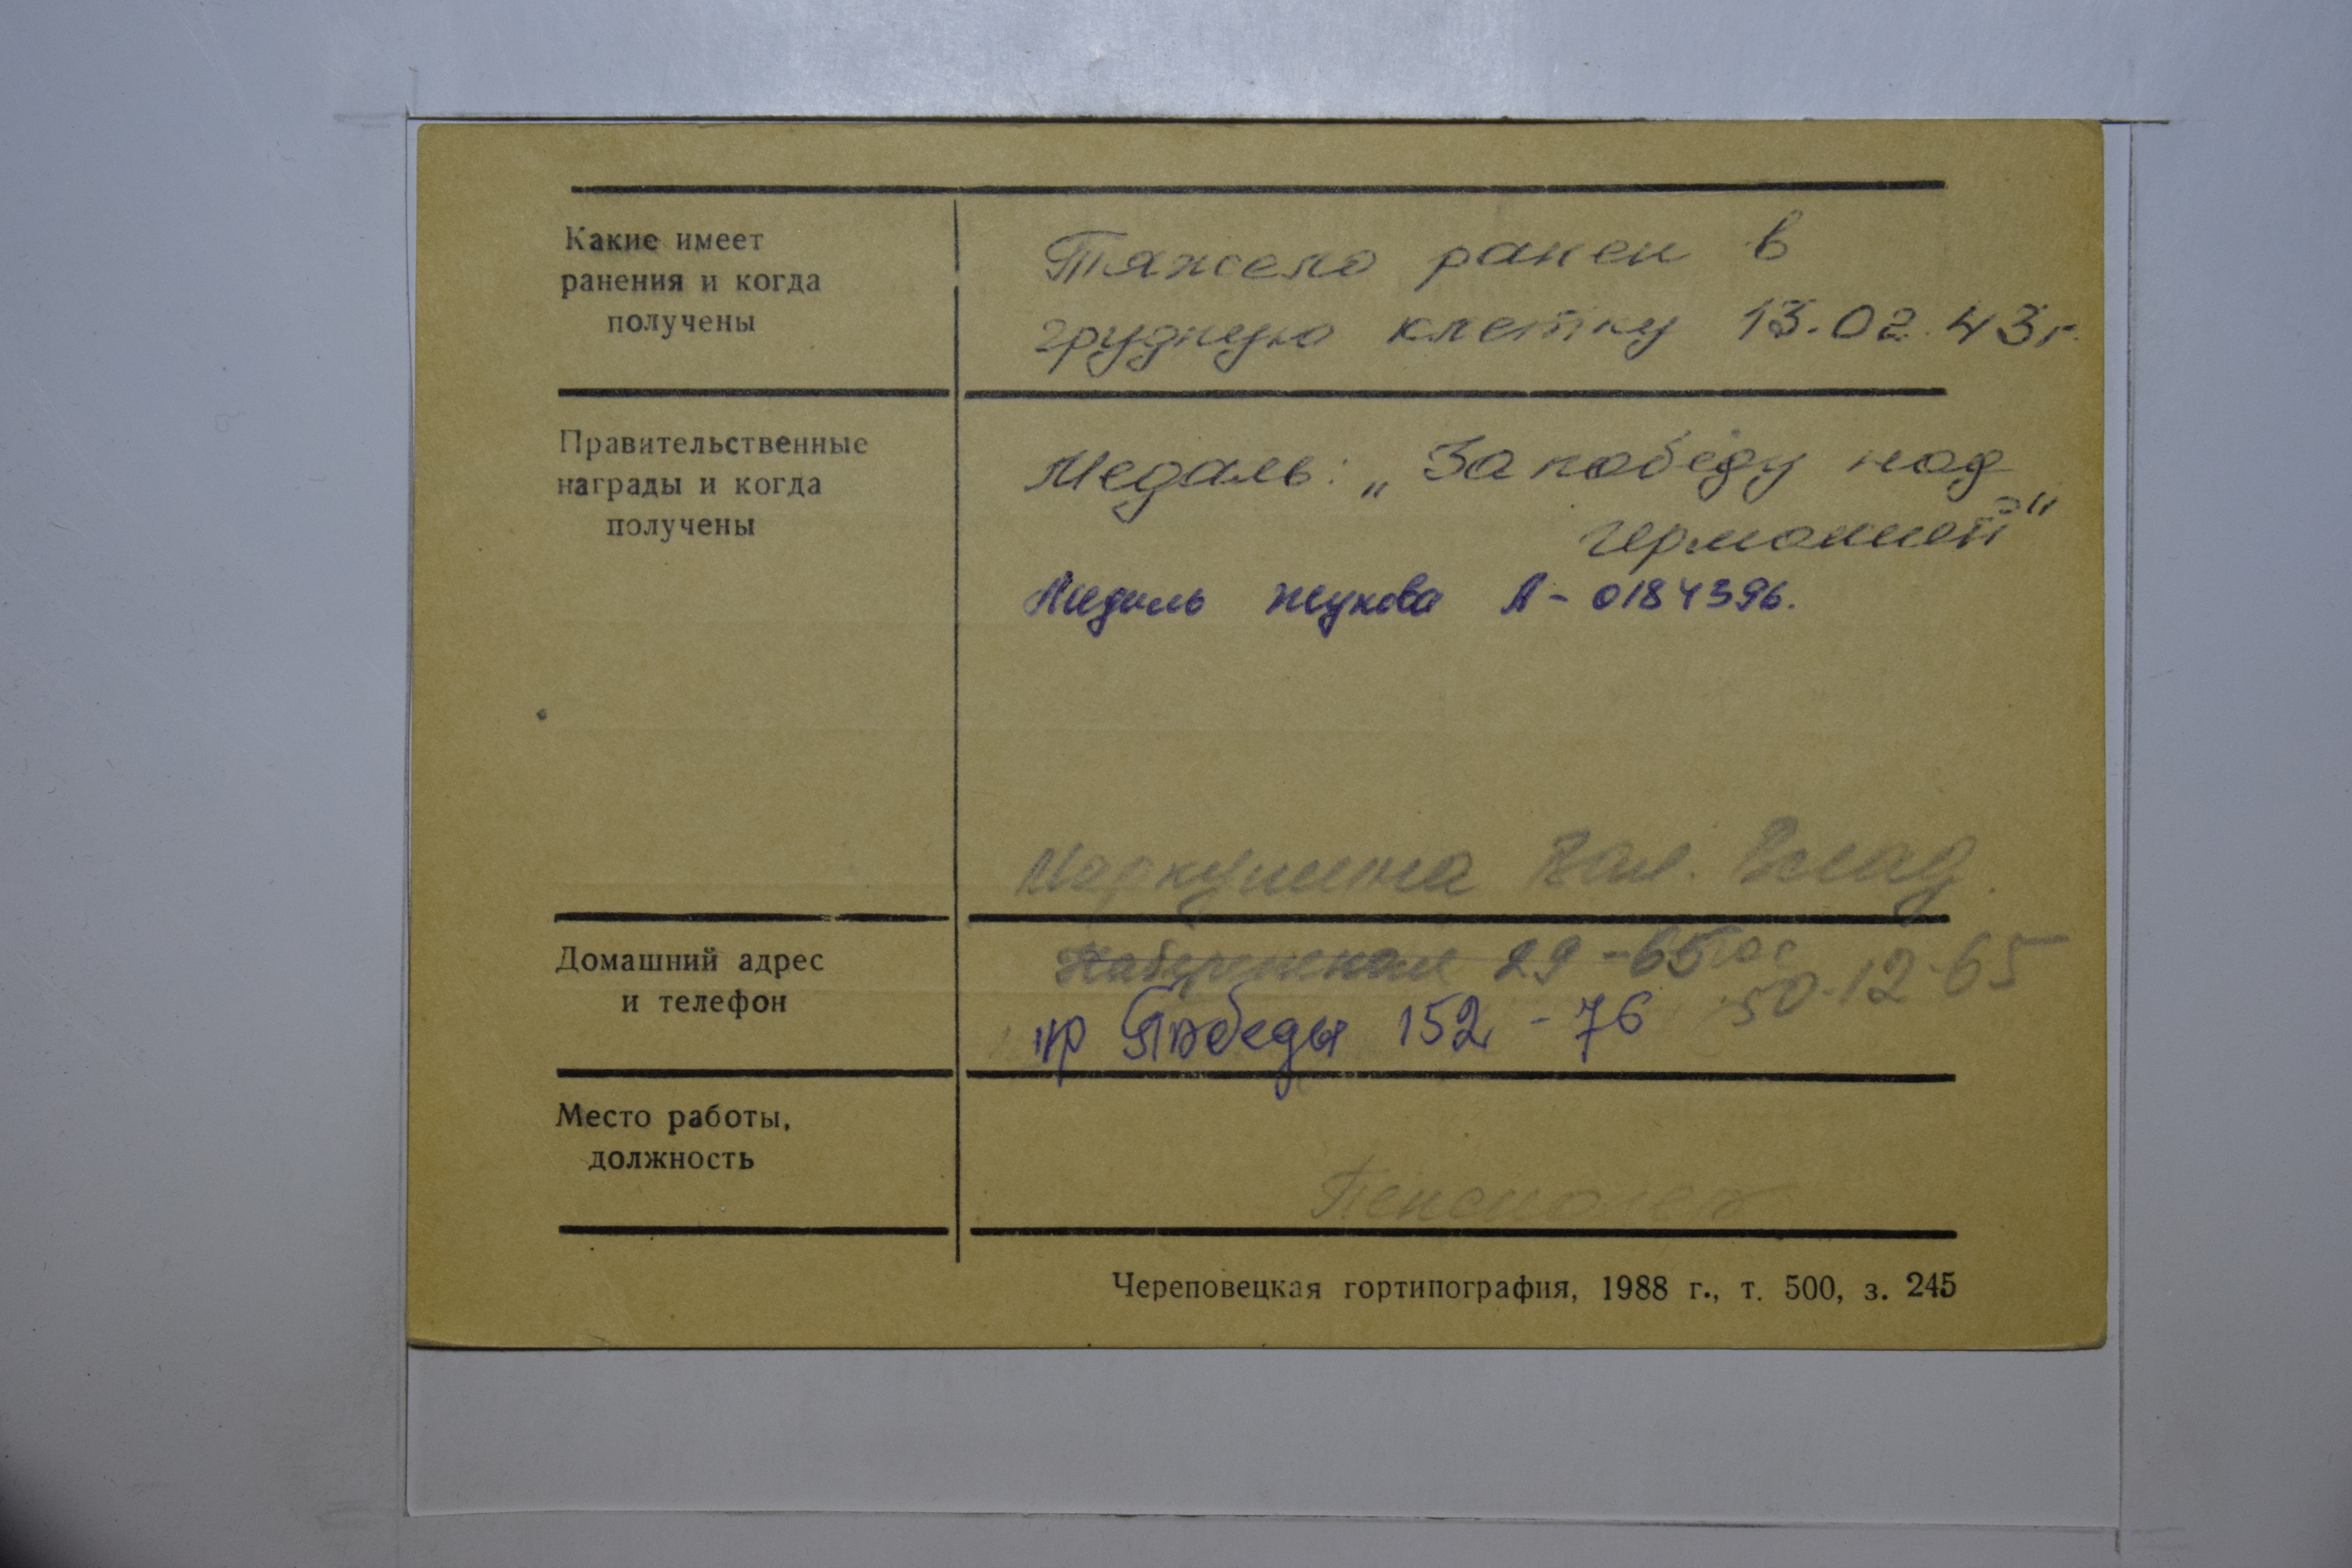 Какие имеет
ранения и когда
получены
Тяжело ранен в
грудную клетку 13.02.43г.
Правительственные
награды и когда
получены
Медаль: „За победу над
Германией"
Медаль Жукова А-0184396.
Вал. Влад.
Домашний адрес
и телефон
Набережная 29-65
50-12-65
пр Победы 152-76
Место работы,
должность
Пенсионер
Череповецкая гортипография, 1988 г., т. 500, з. 245